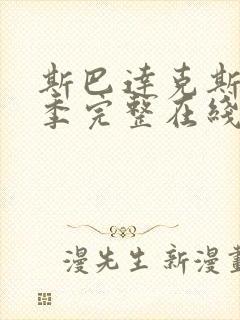 斯巴達克斯
季完整在綫
漫先生新漫畫